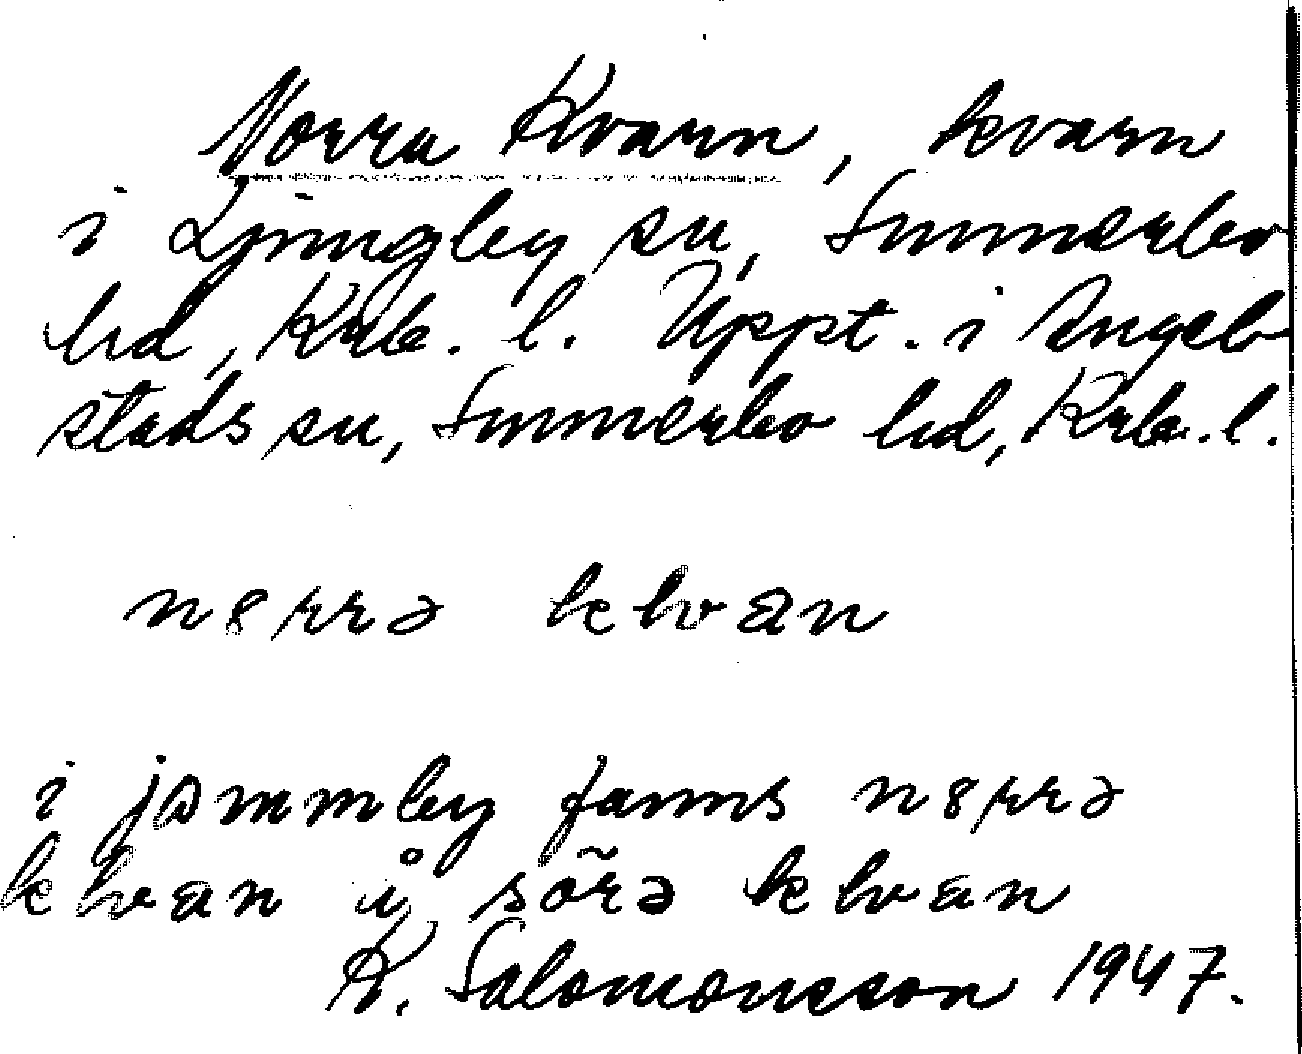 Norra Kvarn, kvarn
i Ljungby sn, Sunnerbo
hd, Krb. l. Uppt. i Angelstads
stads sn, Sunnerbo hd, Krb. l.
n8rrə khvan
i jɷmmby fanns n8rrə
khvan å sõrə khvan
K. Salomonsson 1947.